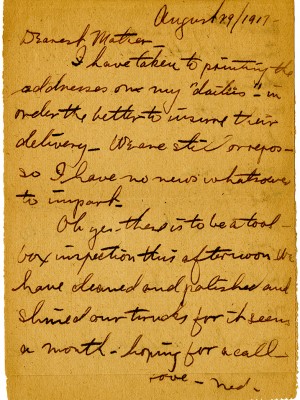 August 29/1917-
Dearest Mother
I have taken to printing the
addresses on my "dailies"- in
order the better to insure their
delivery- We are still "en repos-
so I have no news whatsoever
to impart-
Oh yes- there is to be a tool-
box inspection this afternoon. We
have cleaned and polished and
shined our trucks for it seems
a month- hoping for a call-
Love- Ned-